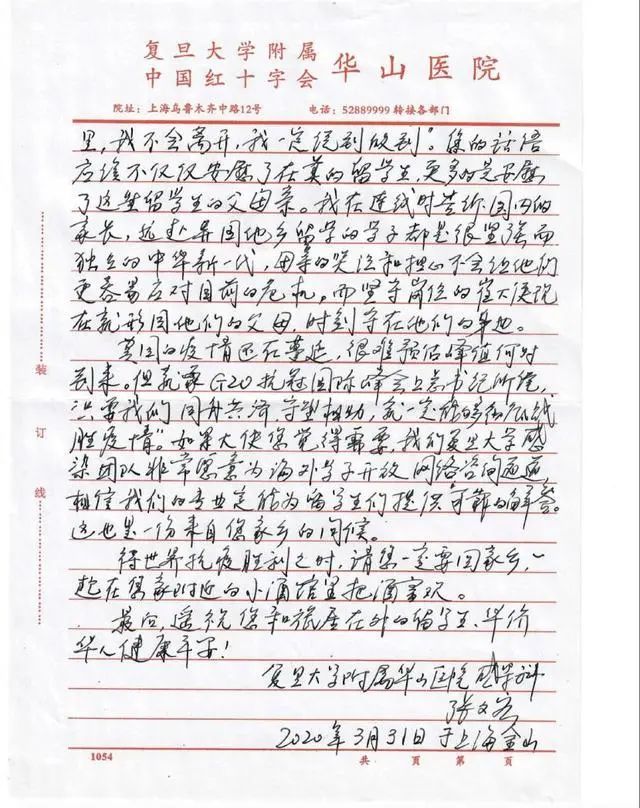 复旦大学附属
中国红十字会 华山医院
院址：上海乌鲁木齐中路12号 电话：52889999 转接各部门
里，我不会离开，我一定说到做到”。您的话语
应该不仅仅安慰了在英的留学生，更多的是安慰
了这些留学生的父母亲。我在连线时告诉国内的
家长，远赴异国他乡留学的学子都是很坚强而
独立的中华新一代，母亲的哭泣和担心不会让他们
更容易应对目前的危机，而坚守岗位的崔大使现
在就形同他们的父母，时刻守在他们的身边。
英国的疫情还在蔓延，很难预估峰值何时
到来。但就像G20抗冠国际峰会上总书记所言，
只要我们同舟共济，守望相助，就一定能够彻底战
胜疫情”。如果大使您觉得需要，我们复旦大学感
染团队非常愿意为海外学子开放网络咨询通道，
相信我们的专业定能为留学生们提供可靠的解答。
这也是一份来自您家乡的问候。
待世界抗疫胜利之时，请您一定要回家乡，一
起在您家附近的小酒馆里把酒言欢。
最后，遥祝您和旅居在外的留学生、华侨
华人健康平安！
复旦大学附属华山医院感染科
张文宏
2020年3月31日于上海金山
装
订
线
1054 共 页 第 页